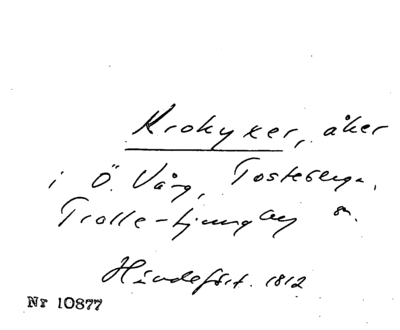 Krokyxer, åker
i Ö. Vång, Tosteberga,
Trolle-Ljungby sn.
Händefört. 1812
Nr 10877